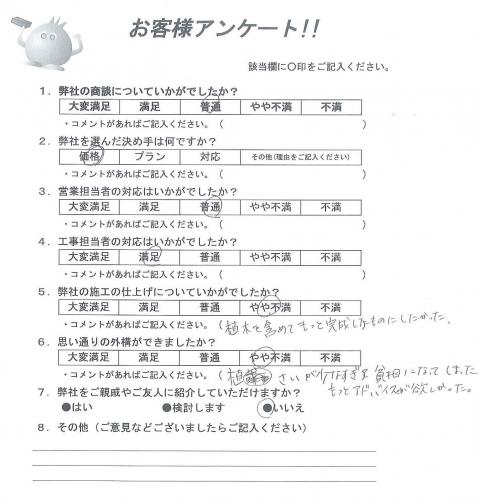 お客様アンケート!!
該当欄に○印をご記入ください。
1. 弊社の商談についていかがでしたか?
大変満足 満足 普通 やや不満 不満
・コメントがあればご記入ください。( )
2. 弊社を選んだ決め手は何ですか?
価格 プラン 対応 その他(理由をご記入ください)
・コメントがあればご記入ください。( )
3. 営業担当者の対応はいかがでしたか?
大変満足 満足 普通 やや不満 不満
・コメントがあればご記入ください。( )
4. 工事担当者の対応はいかがでしたか?
大変満足 満足 普通 やや不満 不満
・コメントがあればご記入ください。( )
5. 弊社の施工の仕上げについていかがでしたか?
大変満足 満足 普通 やや不満 不満
・コメントがあればご記入ください。(植木も含めてもっと完成したものにしたかった。
6. 思い通りの外構ができましたか?
大変満足 満足 普通 やや不満 不満
・コメントがあればご記入ください。(植 さいが少なすぎ 貧相になってしまった
もっとアドバイスが欲しかった。
7. 弊社をご親戚やご友人に紹介していただけますか?
●はい ●検討します ●いいえ
8. その他(ご意見などございましたらご記入ください)